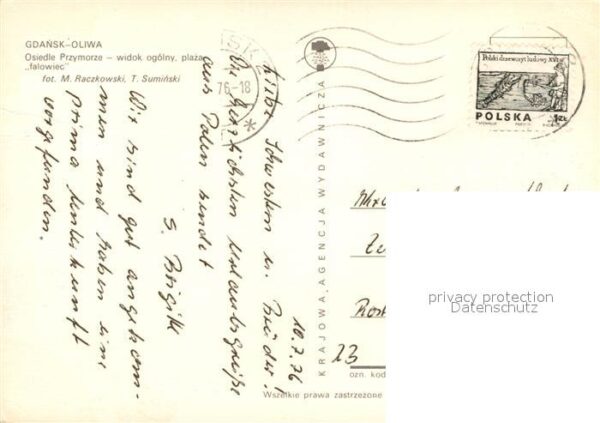 GDAŃSK–OLIWA
Osiedle Przymorze — widok ogólny, plaża,
„falowiec"
fot. M. Raczkowski, T. Sumiński
76-18
KRAJOWA AGENCJA WYDAWNICZA
Polski drzeworyt ludowy XVI w.
POLSKA 1ZŁ
10.7.76
Liebe Schwestern u. Brüder!
Die herzlichsten Urlaubsgrüße
aus Polen sendet
S. Brigitte
Wir sind gut angekom-
men und haben eine
prima Unterkunft
vorgefunden.
Rost
23
ozn. kod
Wszelkie prawa zastrzeżone
privacy protection
Datenschutz